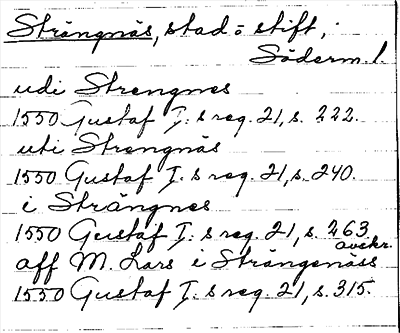 Strängnäs, stad o stift,
Söderm. l.
udi Strengnes
1550 Gustaf I:s reg. 21, s. 222.
uti Strengnäs
1550 Gustaf I:s reg. 21, s. 240.
i Strängnes
1550 Gustaf I:s reg. 21, s. 263
avskr.
aff M. Lars i Strängenäss
1550 Gustaf I:s reg. 21, s. 315.